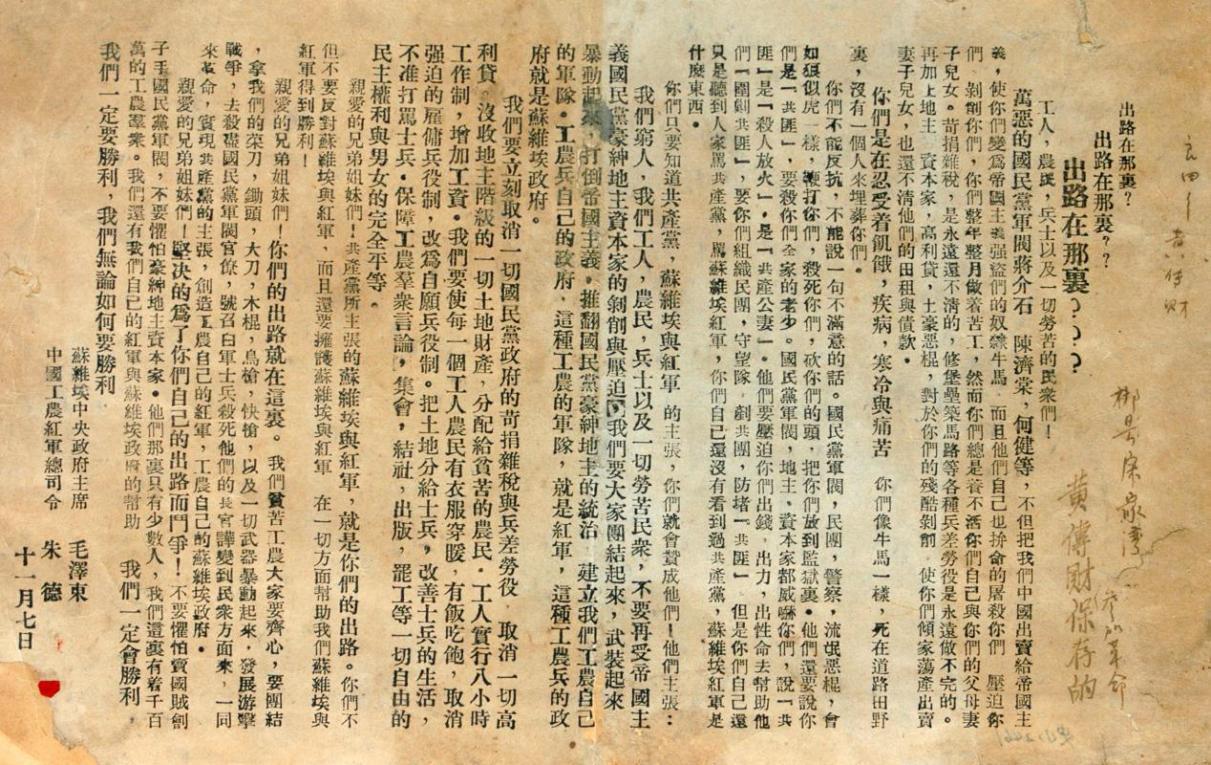 出路在那裏?
出路在那裏??
出路在那裏???
工人,農民,兵士以及一切勞苦的民衆們!
萬惡的國民黨軍閥蔣介石 陳濟棠,何健等,不但把我們中國出賣給帝國主
義,使你們變爲帝國主義强盜們的奴隸牛馬 而且他們自己也拚命的屠殺你們 壓迫你
們 剝削你們,你們整年整月做着苦工,然而你們總是養不活你們自己與你們的父母妻
子兒女。苛捐雜稅,是永遠還不清的,修堡壘築馬路等各種兵差勞役是永遠做不完的。
再加上地主 資本家,高利貸,土豪惡棍,對於你們的殘酷剝削 使你們傾家蕩產出賣
妻子兒女,也還不清他們的田租與債款。
你們是在忍受着飢餓,疾病,寒冷與痛苦 你們像牛馬一樣,死在道路田野
裏,沒有一個人來埋葬你們。
你們不能反抗,不能說一句不滿意的話。國民黨軍閥,民團,警察,流氓惡棍,會
如狼似虎一樣,鞭打你們,殺死你們,砍你們的頭,把你們放到監獄裏。他們還要說你
們是「共匪」,要殺你們全家的老少。國民黨軍閥,地主,資本家都威嚇你們,說「共
匪」是「殺人放火」。是「共產公妻」。他們要壓迫你們出錢,出力,出性命去幫助他
們「圍剿共匪」,要你們組織民團,守望隊,剷共團,防堵「共匪」 但是你們自己還
只是聽到人家罵共產黨,罵蘇維埃紅軍,你們自己還沒有看到過共產黨,蘇維埃紅軍是
什麼東西。
你們只要知道共產黨,蘇維埃與紅軍 的主張,你們就會贊成他們!他們主張:
我們窮人,我們工人,農民,兵士以及一切勞苦民衆,不要再受帝國主
義國民黨豪紳地主資本家的剝削與壓迫 我們要大家團結起來,武裝起來
暴動起來,打倒帝國主義。推翻國民黨豪紳地主的統治 建立我們工農自己
的軍隊。工農兵自己的政府,這種工農的軍隊,就是紅軍,這種工農兵的政
府就是蘇維埃政府。
我們要立刻取消一切國民黨政府的苛捐雜稅與兵差勞役 取消一切高
利貸。沒收地主階級的一切土地財產,分配給貧苦的農民。工人實行八小時
工作制,增加工資。我們要使每一個工人農民有衣服穿暖 有飯吃飽,取消
强迫的雇傭兵役制,改爲自願兵役制。把土地分給士兵,改善士兵的生活,
不准打罵士兵。保障工農羣衆言論,集會,結社,出版,罷工等一切自由的
民主權利與男女的完全平等。
親愛的兄弟姐妹們!共產黨所主張的蘇維埃與紅軍,就是你們的出路。你們不
但不要反對蘇維埃與紅軍,而且還要擁護蘇維埃與紅軍 在一切方面幫助我們蘇維埃與
紅軍得到勝利!
親愛的兄弟姐妹們!你們的出路就在這裏。我們貧苦工農大家要齊心,要團結
,拿我們的柴刀,鋤頭,大刀,木棍,鳥槍,快槍,以及一切武器暴動起來,發展游擊
戰爭,去殺盡國民黨軍閥官僚,號召白軍士兵殺死他們的長官譁變到民衆方面來,一同
來革命,實現共產黨的主張,創造工農自己的紅軍,工農自己的蘇維埃政府。
親愛的兄弟姐妹們!堅決的爲了你們自己的出路而鬥爭!不要懼怕賣國賊劊
子手國民黨軍閥,不要懼怕豪紳地主資本家。他們那裏只有少數人,我們這裏有着千百
萬的工農羣衆。我們還有我們自己的紅軍與蘇維埃政府的幫助 我們一定會勝利,
我們一定要勝利,我們無論如何要勝利
蘇維埃中央政府主席 毛澤東
中國工農紅軍總司令 朱 德
十一月七日
黃傳財保存的